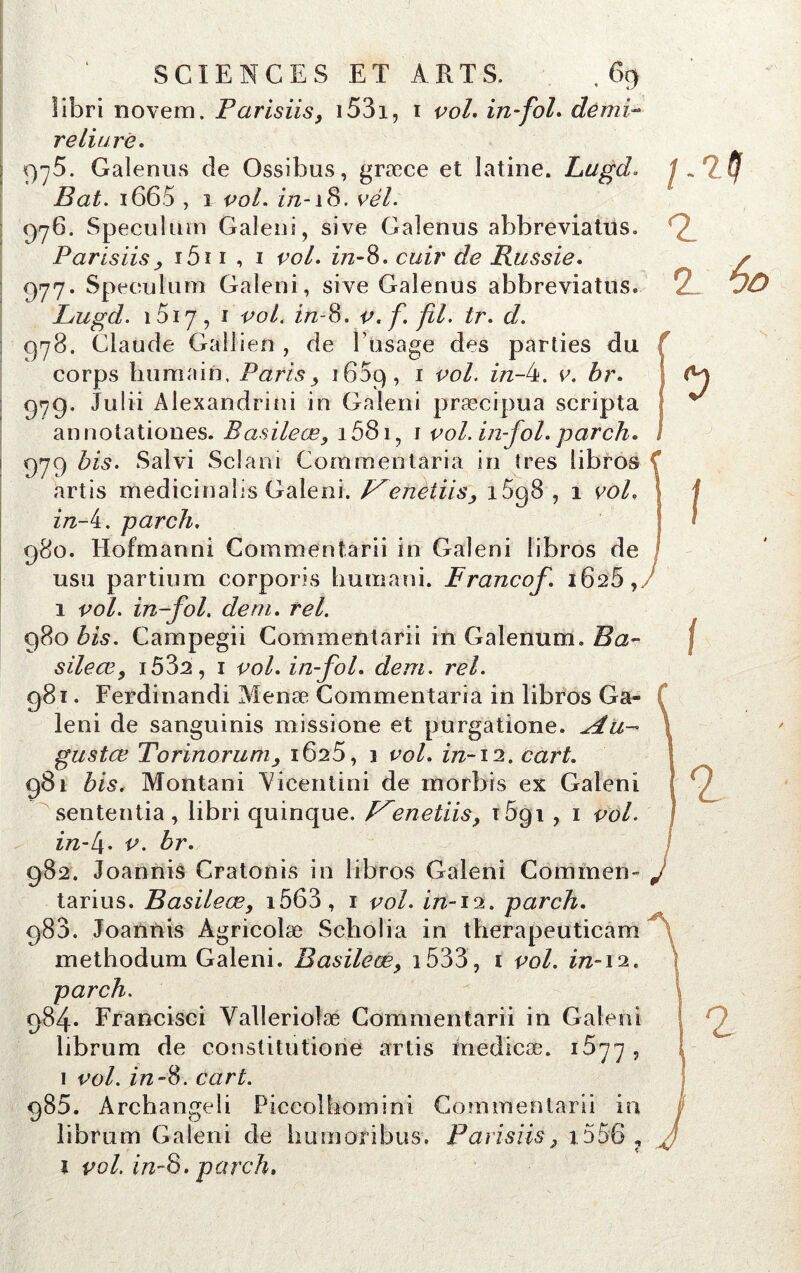 SCIENCES ET ARTS. 69
libri novem. Parisiis, 1531, 1 vol. in-fol. demi-
reliure.
975. Galenus de Ossibus, græce et latine. Lugd.
Bat. 1665, 1 vol. in-18. vél.
976. Speculum Galeni, sive Galenus abbreviatus. 2
Parisiis, 1511, 1 vol. in-8. cuir de Russie.
977. Speculum Galeni, sive Galenus abbreviatus. 2 50
Lugd. 1517, 1 vol. in-8. v. f. fil. tr. d.
978. Claude Gallien, de l'usage des parties du
corps humain. Paris, 1659, 1 vol. in-4. v. br.
979. Julii Alexandrini in Galeni præcipua scripta
annotationes. Basileæ, 1581, 1 vol. in-fol. parch.
979 bis. Salvi Sclani Commentaria in tres libros
artis medicinalis Galeni. Venetiis, 1598, 1 vol. 1
in-4. parch.
980. Hofmanni Commentarii in Galeni libros de
usu partium corporis humani. Francof. 1625,
1 vol. in-fol. dem. rel.
980 bis. Campegii Commentarii in Galenum. Ba- 1
sileæ, 1532, 1 vol. in-fol. dem. rel.
981. Ferdinandi Menæ Commentaria in libros Ga-
leni de sanguinis missione et purgatione. Au-
gustæ Torinorum, 1625, 1 vol. in-12. cart.
981 bis. Montani Vicentini de morbis ex Galeni 2
sententia, libri quinque. Venetiis, 1591, 1 vol.
in-4. v. br.
982. Joannis Cratonis in libros Galeni Commen-
tarius. Basileæ, 1563, 1 vol. in-12. parch.
983. Joannis Agricolæ Scholia in therapeuticam
methodum Galeni. Basileæ, 1533, 1 vol. in-12.
parch.
984. Francisci Valleriolæ Commentarii in Galeni 2
librum de constitutione artis medicæ. 1577,
1 vol. in-8. cart.
985. Archangeli Piccolhomini Commentarii in
librum Galeni de humoribus. Parisiis, 1556,
1 vol. in-8. parch.